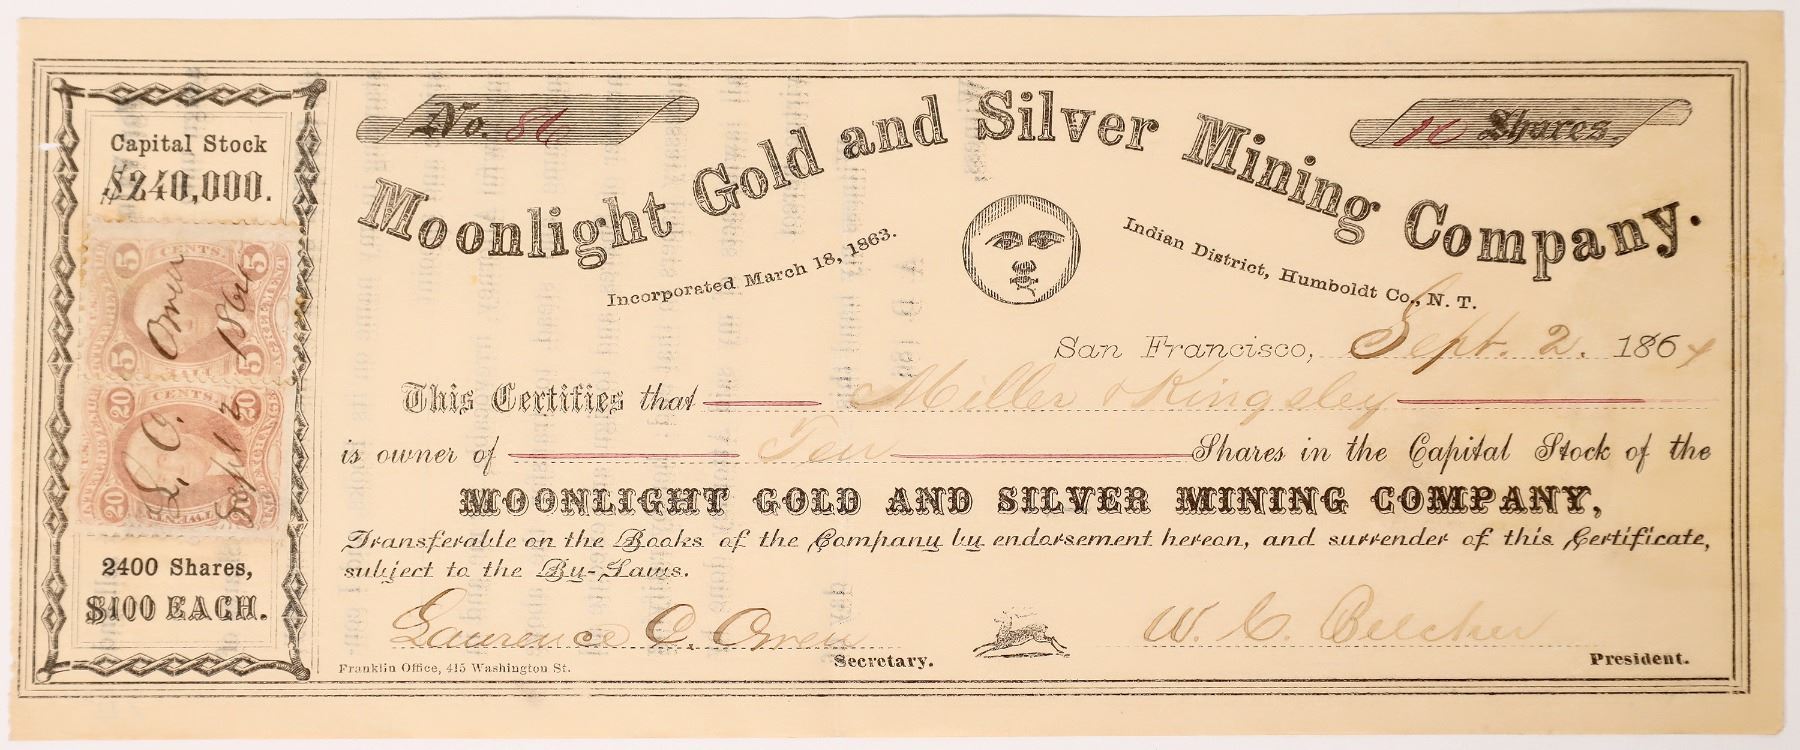 Capital Stock
$240,000.
5 CENTS 5
Owen
1864
5 5
20 CENTS 20
L. O.
Sept 2
20 20
2400 Shares,
$100 EACH.
No. 86
10 Shares.
Moonlight Gold and Silver Mining Company.
Incorporated March 18, 1863.
Indian District, Humboldt Co., N. T.
San Francisco, Sept. 2. 1864
This Certifies that Miller & Kingsley
is owner of Ten Shares in the Capital Stock of the
MOONLIGHT GOLD AND SILVER MINING COMPANY,
Transferable on the Books of the Company by endorsement hereon, and surrender of this Certificate,
subject to the By-Laws.
Laurence O. Owen Secretary.
W. C. Belcher President.
Franklin Office, 415 Washington St.